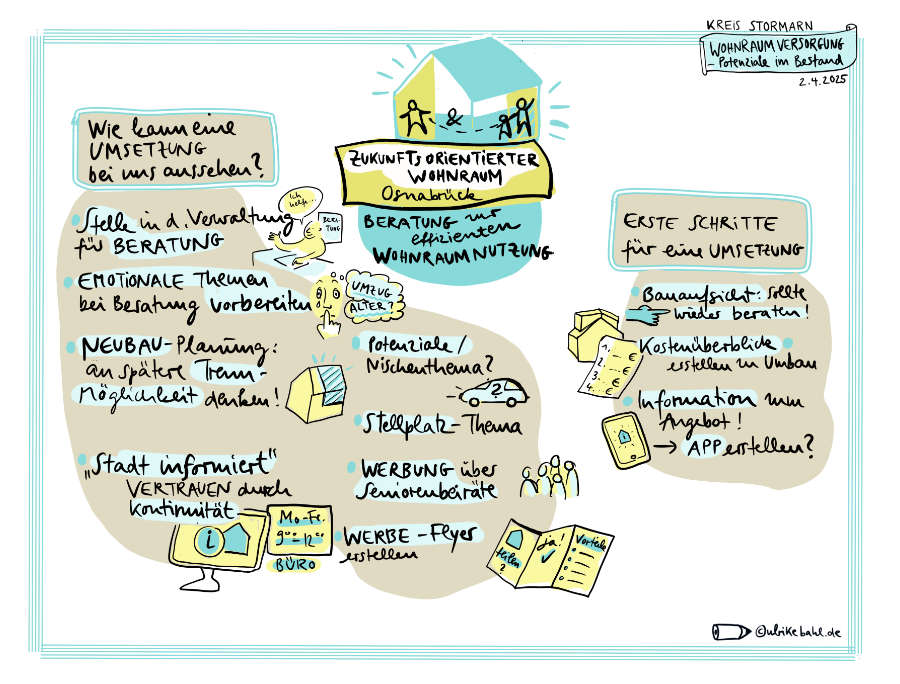 KREIS STORMARN
WOHNRAUMVERSORGUNG
- Potenziale im Bestand
2.4.2025
&
ZUKUNFTSORIENTIERTER
WOHNRAUM
Osnabrück
BERATUNG zur
effizienten
WOHNRAUMNUTZUNG
Wie kann eine
UMSETZUNG
bei uns aussehen?
Stelle in d. Verwaltung
für BERATUNG
Ich
helfe...
BERA-
TUNG
EMOTIONALE Themen
bei Beratung vorbereiten
UMZUG
ALTER?
NEUBAU-Planung:
an spätere Trenn-
Möglichkeit denken!
„Stadt informiert"
VERTRAUEN durch
Kontinuität
i
Mo-Fr.
9°° - 12°°
BÜRO
Potenziale/
Nischenthema?
?
Stellplatz-Thema
WERBUNG über
Seniorenbeiräte
WERBE-Flyer
erstellen
teilen
?
ja!
Vorteile
ERSTE SCHRITTE
für eine UMSETZUNG
Bauaufsicht: sollte
wieder beraten!
Kostenüberblick
erstellen zu Umbau
1. €
2. €
3. €
4. €
Information zum
Angebot!
→ APP erstellen?
©ulrikebahl.de